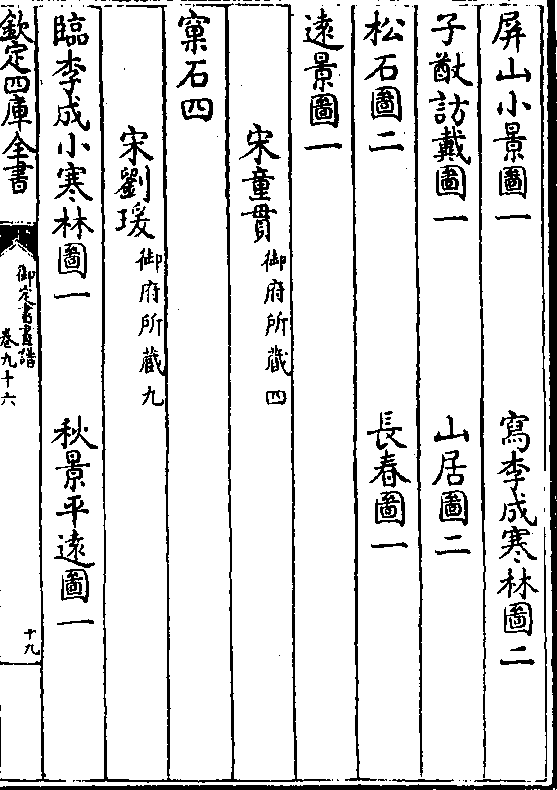 屏山小景圖一　寫李成寒林圖二
子猷訪戴圖一　山居圖二
松石圖二　長春圖一
遠景圖一
宋童貫御府所藏四
窠石四
宋劉瑗御府所藏九
臨李成小寒林圖一　秋景平遠圖一
欽定四庫全書　御定書畫譜　卷九十六　十九